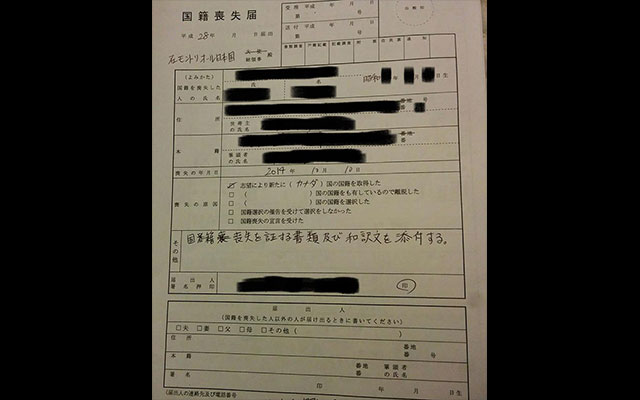 国籍喪失届
平成 28年 月 日届出
在モントリオール日本国 総領事 殿
受理 平成 年 月 日
第 号
送付 平成 年 月 日
第 号
書類調査 戸籍記載 記載調査
(よみかた)
国籍を喪失した
人の氏名
氏 名
昭和 年 月 日生
住所
番地
番 号
世帯主
の氏名
本籍
番地
番
筆頭者
の氏名
喪失の年月日
2014 年 月 日
喪失の原因
志望により新たに(カナダ)国の国籍を取得した
□( )国の国籍をも有しているので離脱した
□( )国の国籍を選択した
□ 国籍選択の催告を受けて選択をしなかった
□ 国籍喪失の宣言を受けた
その他
喪失を証する書類及び和訳文を添付する。
届出人
署名押印
印
届出人
(国籍を喪失した人以外の人が届け出るときに書いてください)
□夫 □妻 □父 □母 □その他( )
住所
番地
番 号
本籍
番地
番
筆頭者
の氏名
署名
印 年 月 日生
(届出人の連絡先及び電話番号